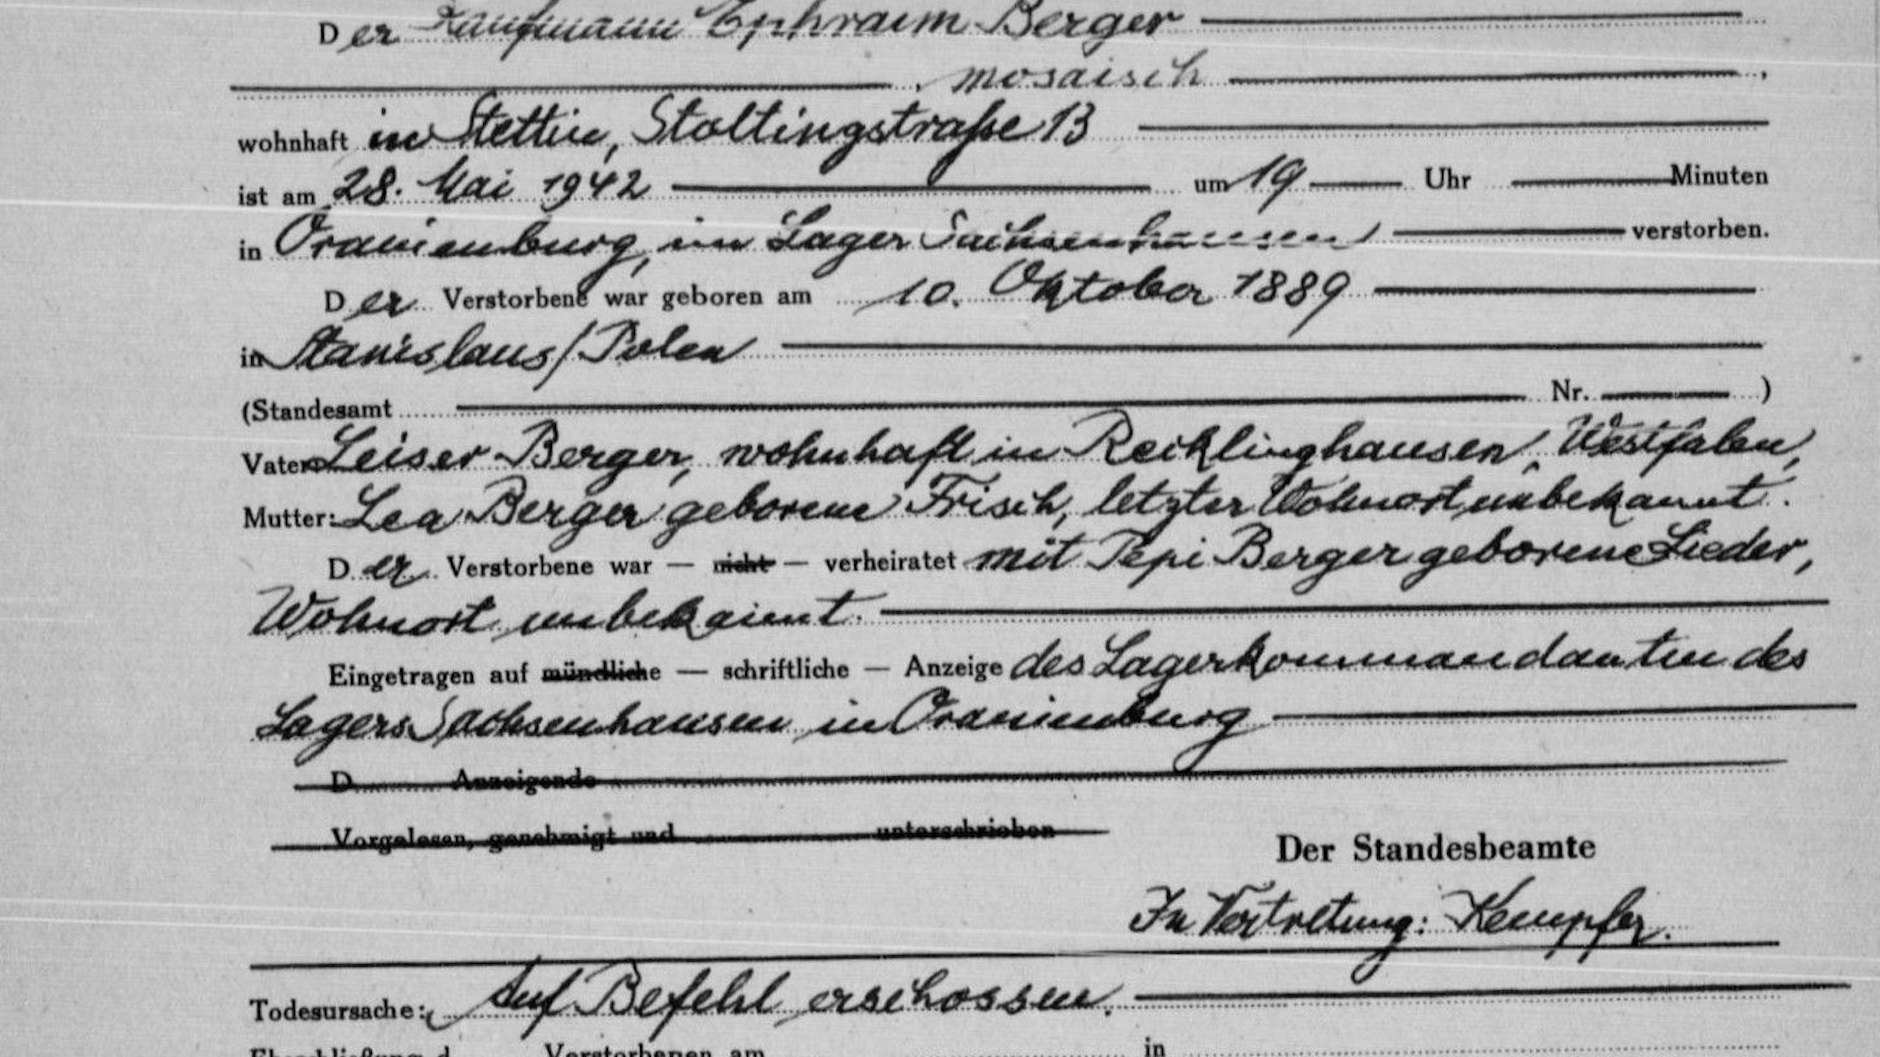 Der Kaufmann Ephraim Berger
, mosaisch ,
wohnhaft in Stettin, Stoltingstraße 13
ist am 28. Mai 1942 um 19 Uhr Minuten
in Oranienburg, im Lager Sachsenhausen verstorben.
Der Verstorbene war geboren am 10. Oktober 1889
in Stanislaus/Polen
(Standesamt Nr. )
Vater: Leiser Berger, wohnhaft in Recklinghausen, Westfalen,
Mutter: Lea Berger geborene Frisch, letzter Wohnort unbekannt.
Der Verstorbene war — nicht — verheiratet mit Pepi Berger geborene Lieder,
Wohnort unbekannt.
Eingetragen auf mündliche — schriftliche — Anzeige des Lagerkommandanten des
Lagers Sachsenhausen in Oranienburg
D Anzeigende
Vorgelesen, genehmigt und unterschrieben
Der Standesbeamte
In Vertretung: Kempfer.
Todesursache: Auf Befehl erschossen.
Eheschließung d Verstorbenen am in